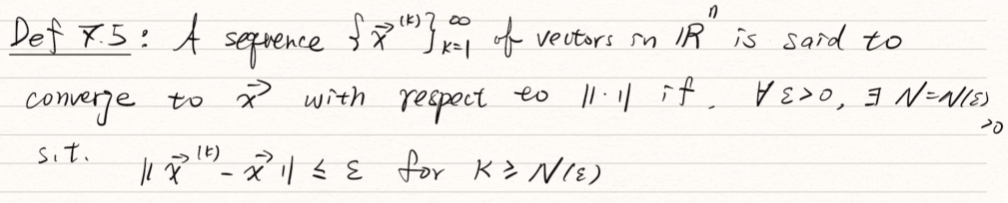 Def 7.5: A sequence {x⃗^(k)}_{k=1}^∞ of vectors in ℝ^n is said to
converge to x⃗ with respect to ||·|| if, ∀ ε>0, ∃ N=N(ε)
>0
s.t. ||x⃗^(k) - x⃗|| ≤ ε for k ≥ N(ε)